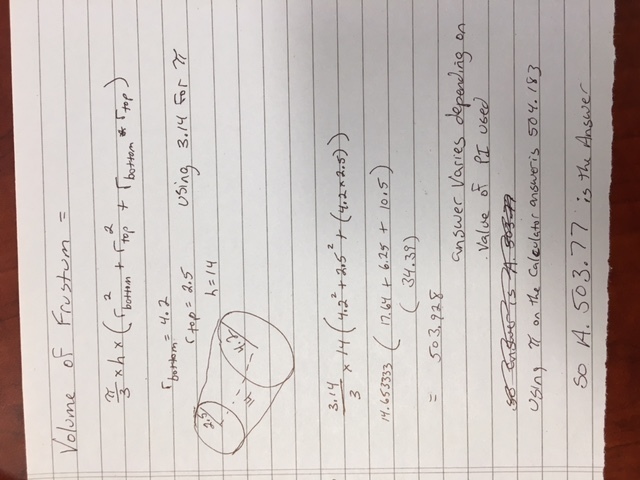 Volume of Frustum =
π/3 x h x (r²bottom + r²top + rbottom * rtop)
rbottom = 4.2
rtop = 2.5 using 3.14 for π
h=14
2.5
14
4.2
3.14/3 x 14 (4.2² + 2.5² + (4.2 x 2.5))
14.653333 (17.64 + 6.25 + 10.5)
(34.39)
= 503.928
answer varies depending on
value of PI used
so answer is A. 503.77
Using π on the calculator answer is 504.183
so A. 503.77 is the Answer